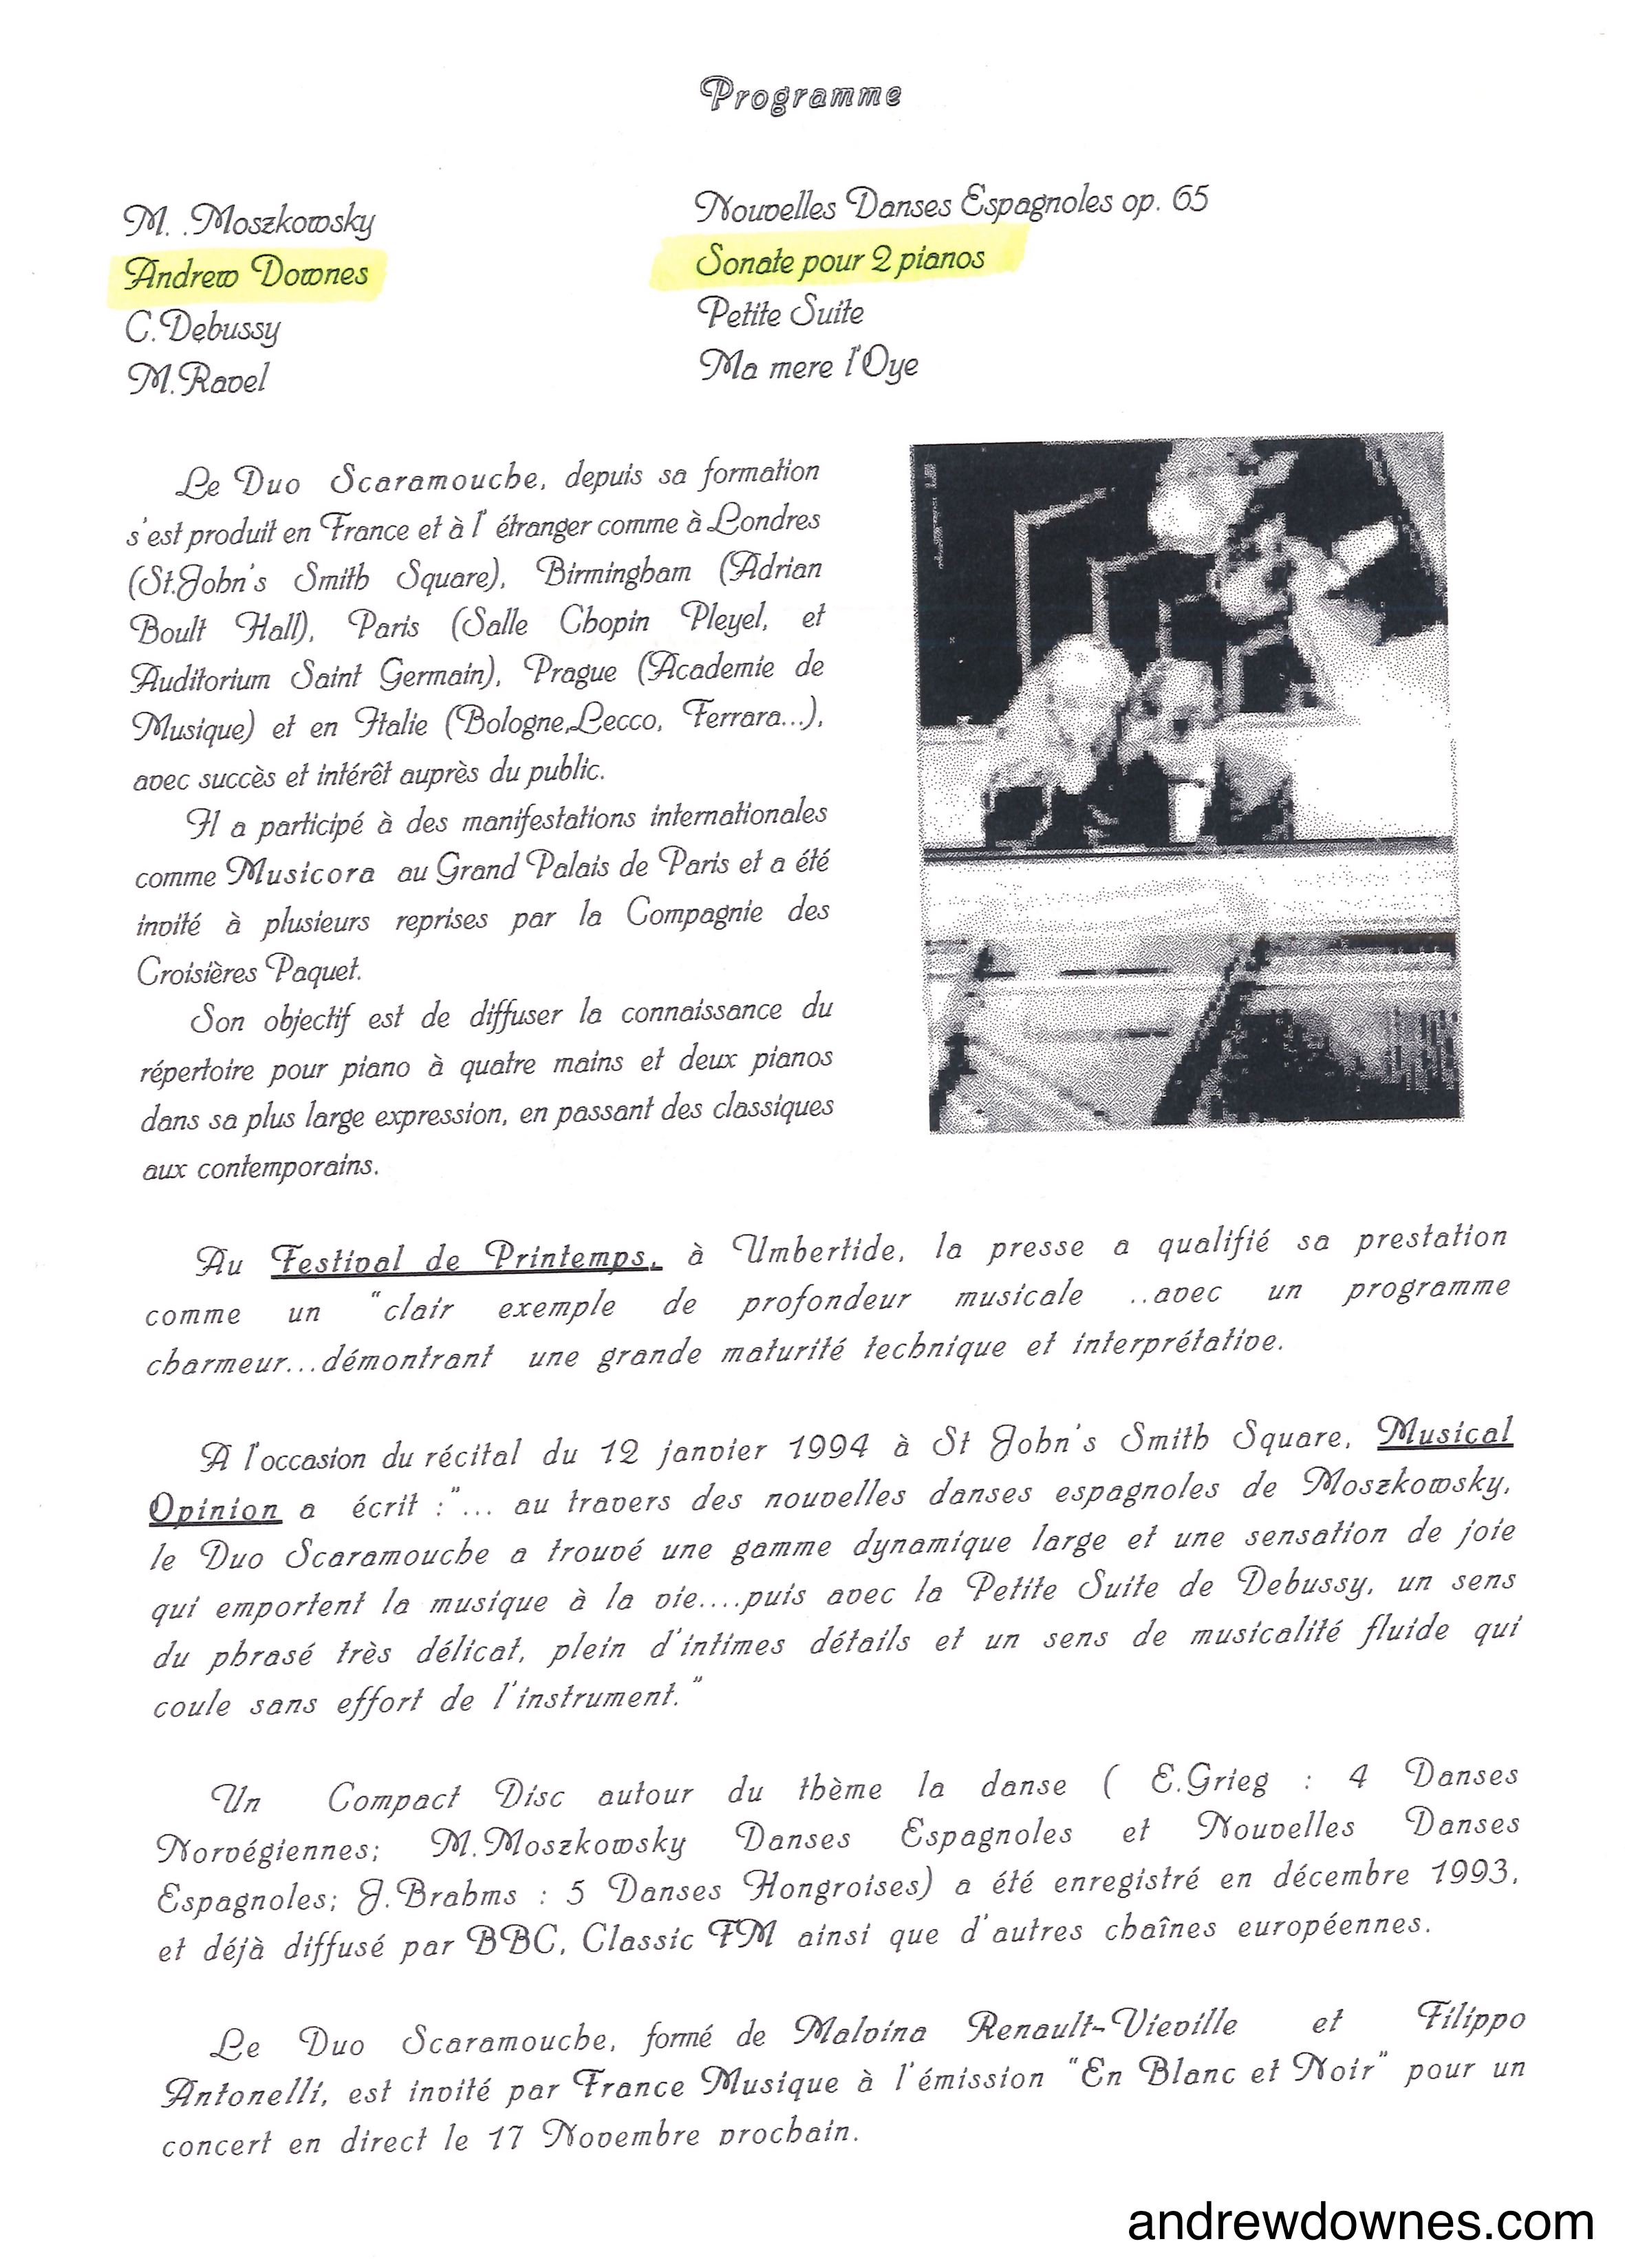 Programme
M. .Moszkowsky Nouvelles Danses Espagnoles op. 65
Andrew Downes Sonate pour 2 pianos
C.Debussy Petite Suite
M.Ravel Ma mere l'Oye
Le Duo Scaramouche, depuis sa formation
s'est produit en France et à l' étranger comme à Londres
(St.John's Smith Square), Birmingham (Adrian
Boult Hall), Paris (Salle Chopin Pleyel, et
Auditorium Saint Germain), Prague (Academie de
Musique) et en Italie (Bologne,Lecco, Ferrara...),
avec succès et intérêt auprès du public.
Il a participé à des manifestations internationales
comme Musicora au Grand Palais de Paris et a été
invité à plusieurs reprises par la Compagnie des
Croisières Paquet.
Son objectif est de diffuser la connaissance du
répertoire pour piano à quatre mains et deux pianos
dans sa plus large expression, en passant des classiques
aux contemporains.
Au Festival de Printemps, à Umbertide, la presse a qualifié sa prestation
comme un "clair exemple de profondeur musicale ..avec un programme
charmeur...démontrant une grande maturité technique et interprétative.
A l'occasion du récital du 12 janvier 1994 à St John's Smith Square, Musical
Opinion a écrit :"... au travers des nouvelles danses espagnoles de Moszkowsky,
le Duo Scaramouche a trouvé une gamme dynamique large et une sensation de joie
qui emportent la musique à la vie....puis avec la Petite Suite de Debussy, un sens
du phrasé très délicat, plein d'intimes détails et un sens de musicalité fluide qui
coule sans effort de l'instrument."
Un Compact Disc autour du thème la danse ( E.Grieg : 4 Danses
Norvégiennes; M.Moszkowsky Danses Espagnoles et Nouvelles Danses
Espagnoles; J.Brahms : 5 Danses Hongroises) a été enregistré en décembre 1993,
et déjà diffusé par BBC, Classic FM ainsi que d'autres chaînes européennes.
Le Duo Scaramouche, formé de Malvina Renault-Vieville et Filippo
Antonelli, est invité par France Musique à l'émission "En Blanc et Noir" pour un
concert en direct le 17 Novembre prochain.
andrewdownes.com